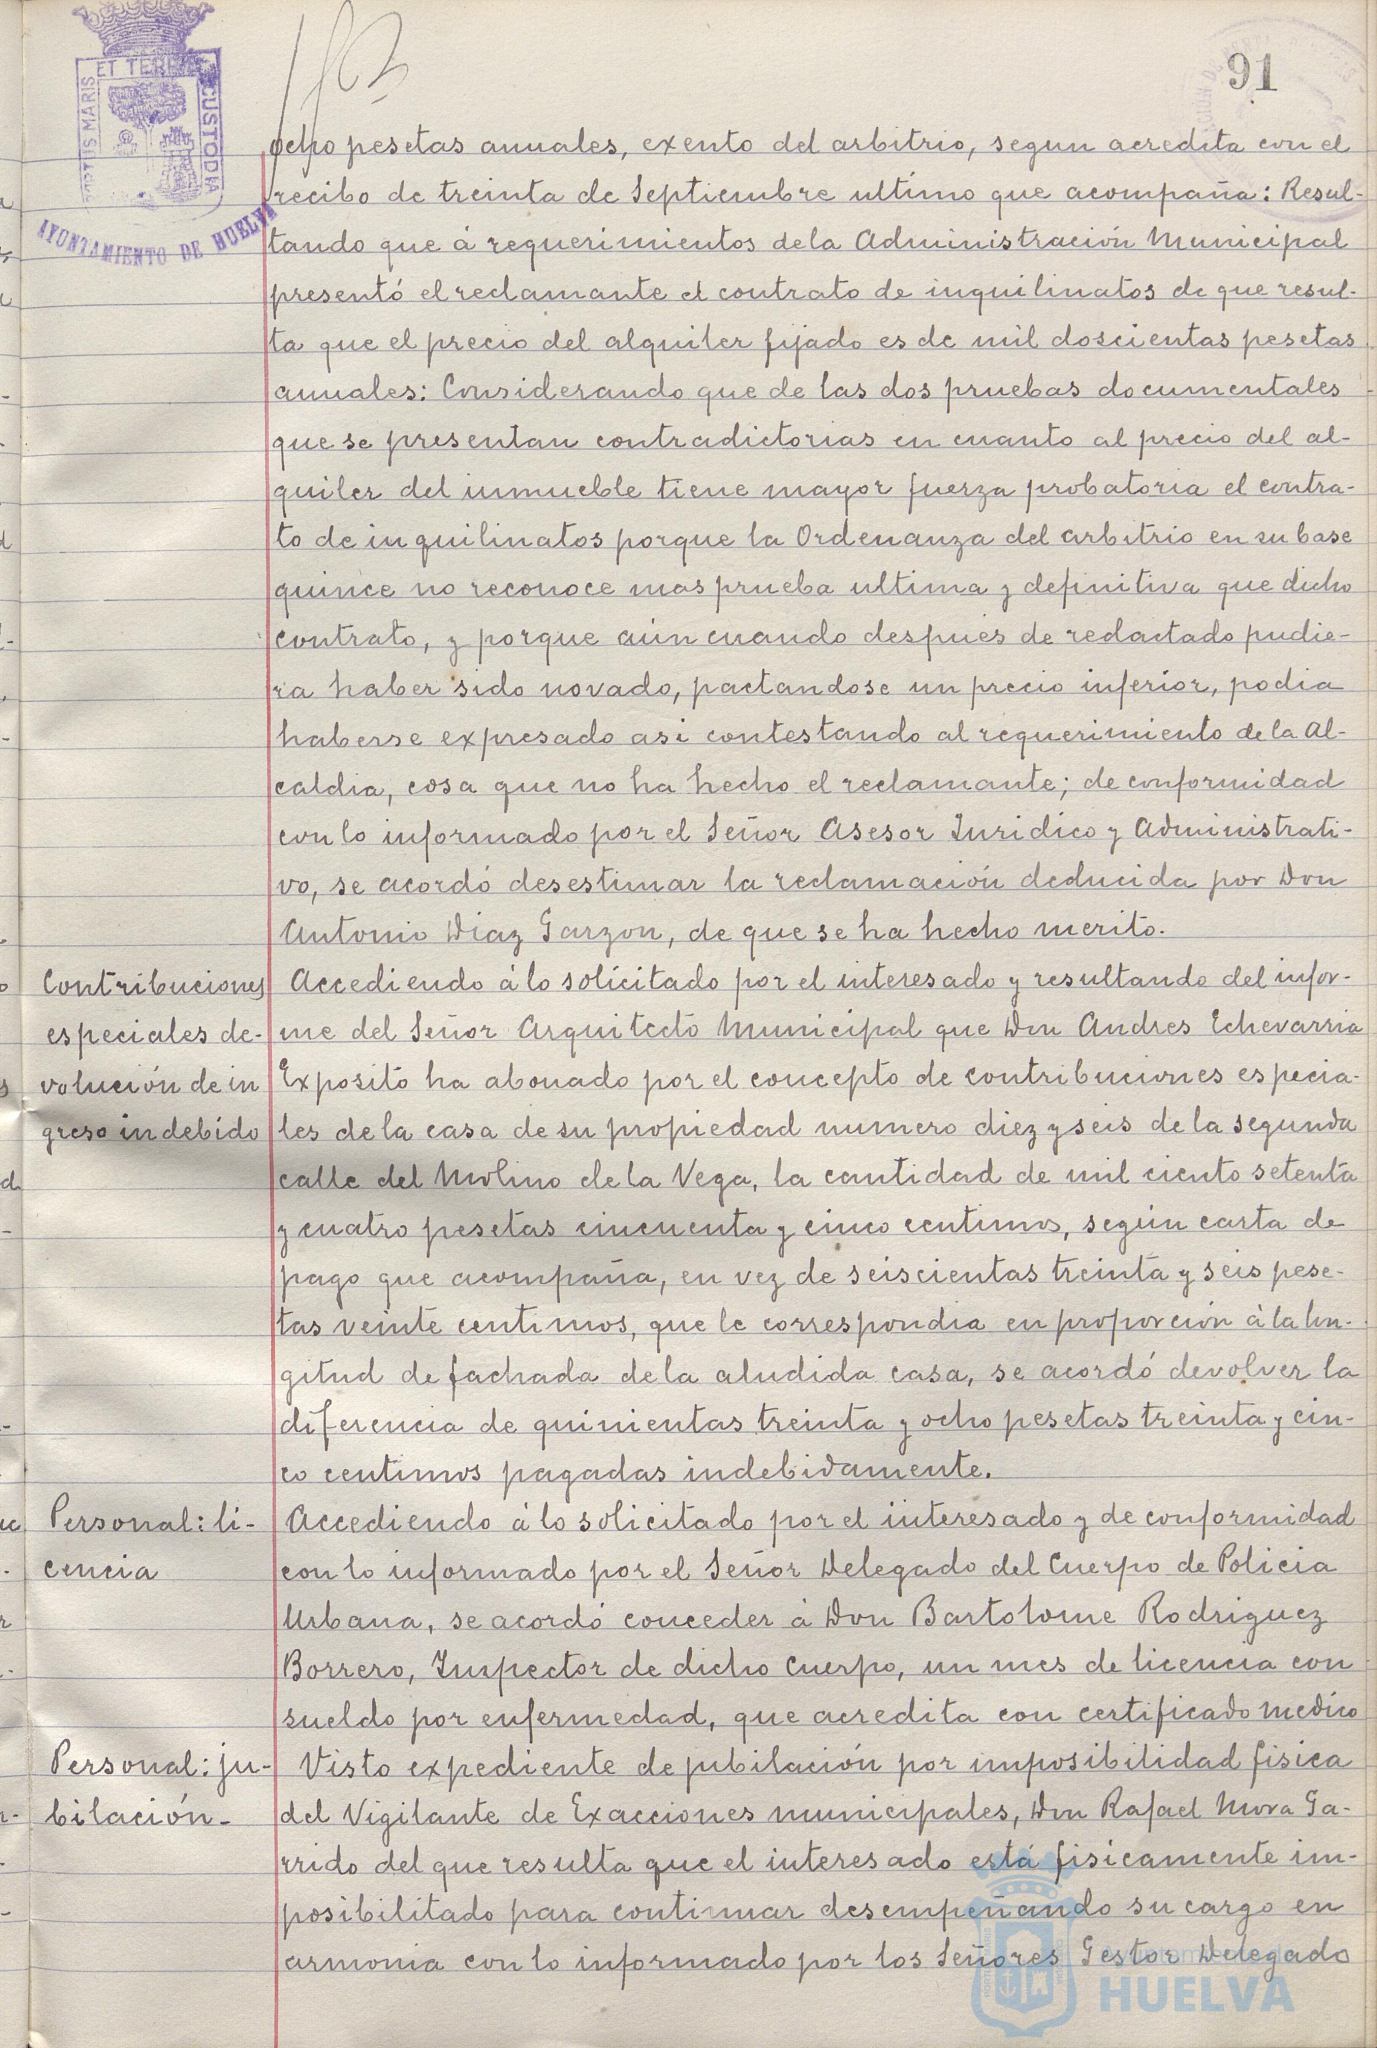 91
PORTUS MARIS ET TERRAE CUSTODIA
AYUNTAMIENTO DE HUELVA
ocho pesetas anuales, exento del arbitrio, segun acredita con el
recibo de treinta de Septiembre ultimo que acompaña: Resul-
tando que á requerimientos dela Administración Municipal
presentó el reclamante el contrato de inquilinatos de que resul-
ta que el precio del alquiler fijado es de mil doscientas pesetas
anuales: Considerando que de las dos pruebas documentales
que se presentan contradictorias en cuanto al precio del al-
quiler del inmueble tiene mayor fuerza probatoria el contra-
to de inquilinatos porque la Ordenanza del arbitrio en su base
quince no reconoce mas prueba ultima y definitiva que dicho
contrato, y porque aún cuando despues de redactado pudie-
ra haber sido novado, pactandose un precio inferior, podia
haberse expresado asi contestando al requerimiento de la Al-
caldia, cosa que no ha hecho el reclamante; de conformidad
con lo informado por el Señor Asesor Juridico y Administrati-
vo, se acordó desestimar la reclamación deducida por Don
Antonio Diaz Garzon, de que se ha hecho merito.
Contribuciones
especiales de-
volución de in
greso indebido
Accediendo á lo solicitado por el interesado y resultando del infor-
me del Señor Arquitecto Municipal que Don Andres Echevarria
Exposito ha abonado por el concepto de contribuciones especia-
les de la casa de su propiedad numero diez y seis de la segunda
calle del Molino de la Vega, la cantidad de mil ciento setenta
y cuatro pesetas cincuenta y cinco centimos, según carta de
pago que acompaña, en vez de seiscientas treinta y seis pese-
tas veinte centimos, que le correspondia en proporción á la lon-
gitud de fachada de la aludida casa, se acordó devolver la
diferencia de quinientas treinta y ocho pesetas treinta y cin-
co centimos pagadas indebidamente.
Personal: li-
cencia
Accediendo á lo solicitado por el interesado y de conformidad
con lo informado por el Señor Delegado del Cuerpo de Policia
Urbana, se acordó conceder á Don Bartolome Rodriguez
Borrero, Inspector de dicho Cuerpo, un mes de licencia con
sueldo por enfermedad, que acredita con certificado medico
Personal: ju-
bilación-
Visto expediente de jubilación por imposibilidad fisica
del Vigilante de Exacciones municipales, Don Rafael Mora Ga-
rrido del que resulta que el interesado está fisicamente im-
posibilitado para continuar desempeñando su cargo en
armonia con lo informado por los Señores Gestor Delegado
HUELVA